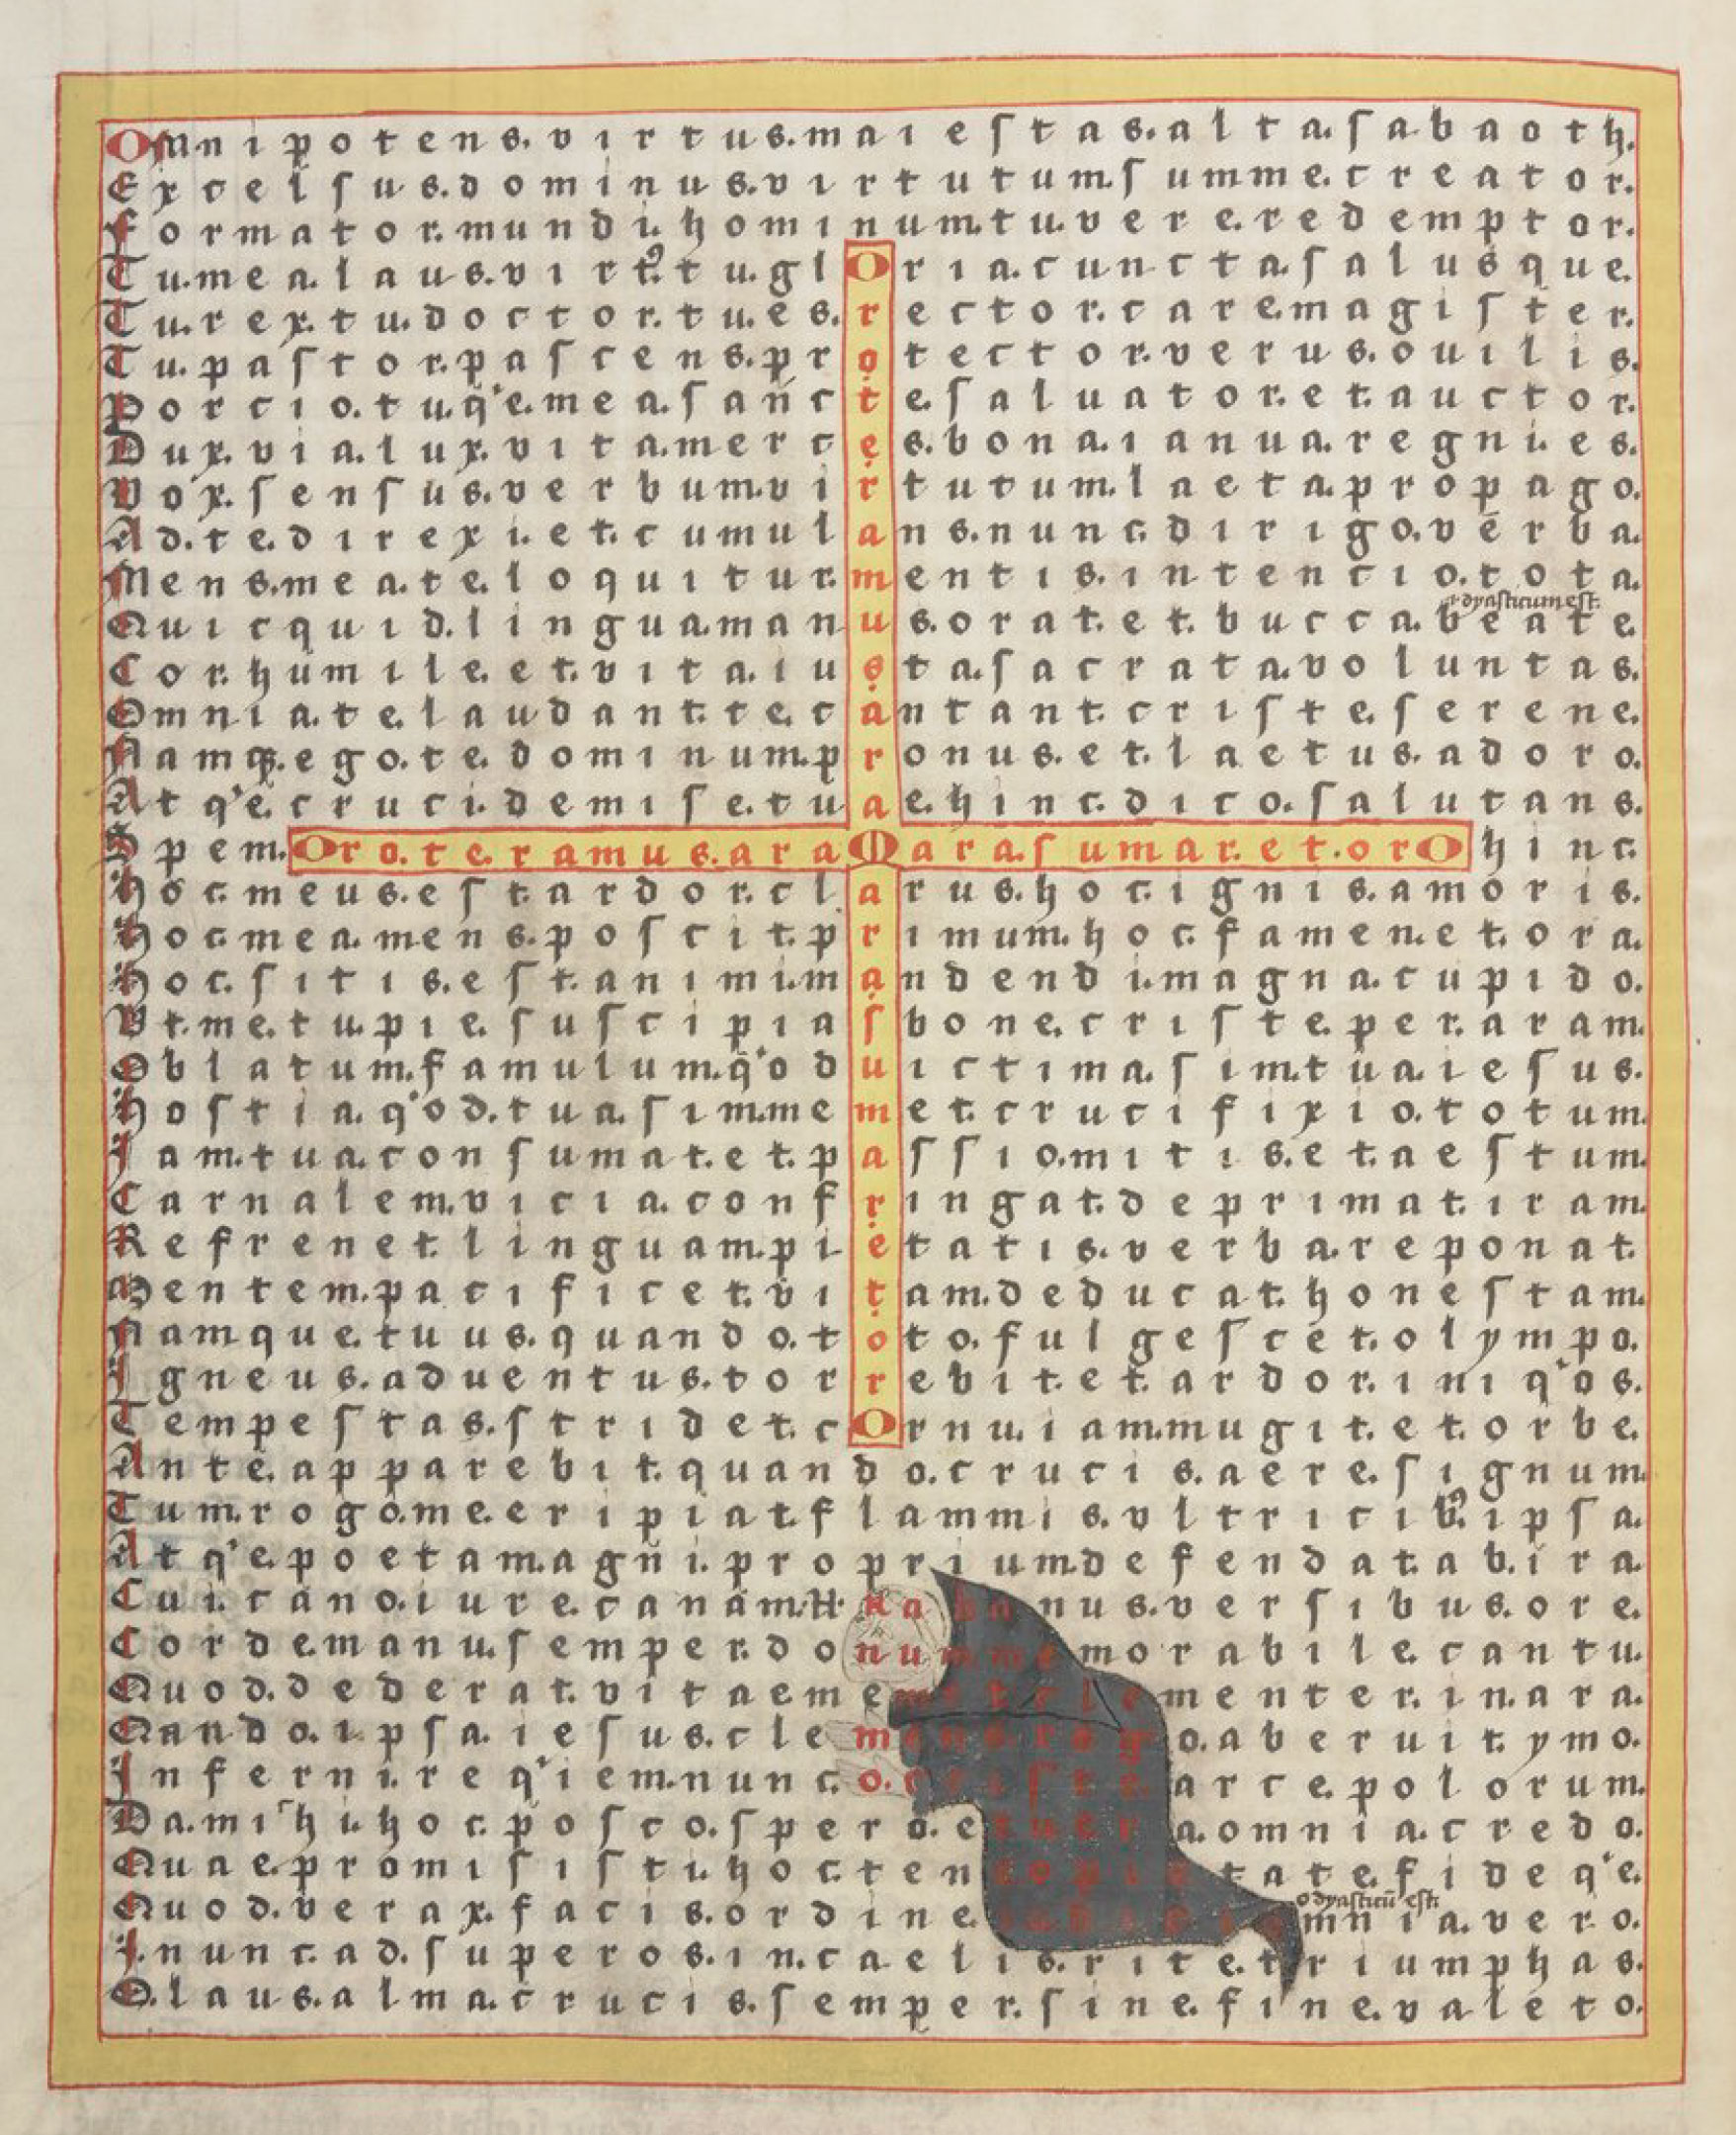 Omnipotens. virtus. maiestas. alta. sabaoth.
Excelsus. dominus. virtutum. summe. creator.
Formator. mundi. hominum. tu. vere. redemptor.
Tu. mea. laus. virt9. tu. glOria. cuncta. salusque.
Tu. rex. tu. doctor. tu. es. rector. care. magister.
Tu. pastor. pascens. protector. verus. ouilis.
Porcio. tu. q'e. mea. sancte. saluator. et. auctor.
Dux. via. lux. vita. merces. bona. ianua. regni. es.
Vox. sensus. verbum. virtutum. laeta. propago.
Ad. te. direxi. et. cumulans. nunc. dirigo. verba.
Mens. mea. te. loquitur. mentis. intencio. tota.
dyasticum est.
Quicquid. lingua. manus. orat. et. bucca. beate.
Cor. humile. et. vita. iusta. sacrata. voluntas.
Omnia. te. laudant. te. cantant. criste. serene.
Namq;. ego. te. dominum. pronus. et. laetus. adoro.
Atq'e. cruci. demisse. tuae. hinc. dico. salutans.
Spem. Oro. te. ramus. ara Mara. sumar. et. orO hinc.
Hoc. meus. est. ardor. clarus. hoc. ignis. amoris.
Hoc. mea. mens. poscit. primum. hoc. famen. et. ora.
Hoc. sitis. est. animi. mandendi. magna. cupido.
Vt. me. tu. pie. suscipias bone. criste. per. aram.
Oblatum. famulum. q'od uictima. sim. tua. iesus.
Hostia. q'od. tua. sim. memet. crucifixio. totum.
Iam. tua. consumat. et. passio. mitis. et. aestum.
Carnalem. vicia. confringat. deprimat. iram.
Refrenet. linguam. pietatis. verba. reponat.
Mentem. pacificet. vitam. deducat. honestam.
Namque. tuus. quando. toto. fulgescet. olympo.
Igneus. aduentus. torrebit. et. ardor. iniq'os.
Tempestas. stridet. cOrnu. iam. mugit. et. orbe.
Ante. apparebit. quando. crucis. aere. signum.
Tum. rogo. me. eripiat. flammis. vltricib9. ipsa.
Atq'e. poetam. magni. proprium. defendat. ab. ira.
Cui. cano. iure. canam. Hrabanus. versibus. ore.
Corde. manu. semper. donum memorabile. cantu.
Quod. dederat. vitae memet clementer. in. ara.
Qando. ipsa. iesus. clemens rogo. ab eruit. ymo.
Inferni. req'iem. nunc. o. criste arce. polorum.
Da. mihi. hoc. posco. spero. et uera. omnia. credo.
Quae. promisisti. hoc. tento pietate. fideq'e.
odyasticu est.
Quod. verax. facis. ordine. iudicio omnia. vero.
I. nunc. ad. superos. in. caelis. rite. triumphas.
O. laus. alma. crucis. semper. sine. fine. valeto.